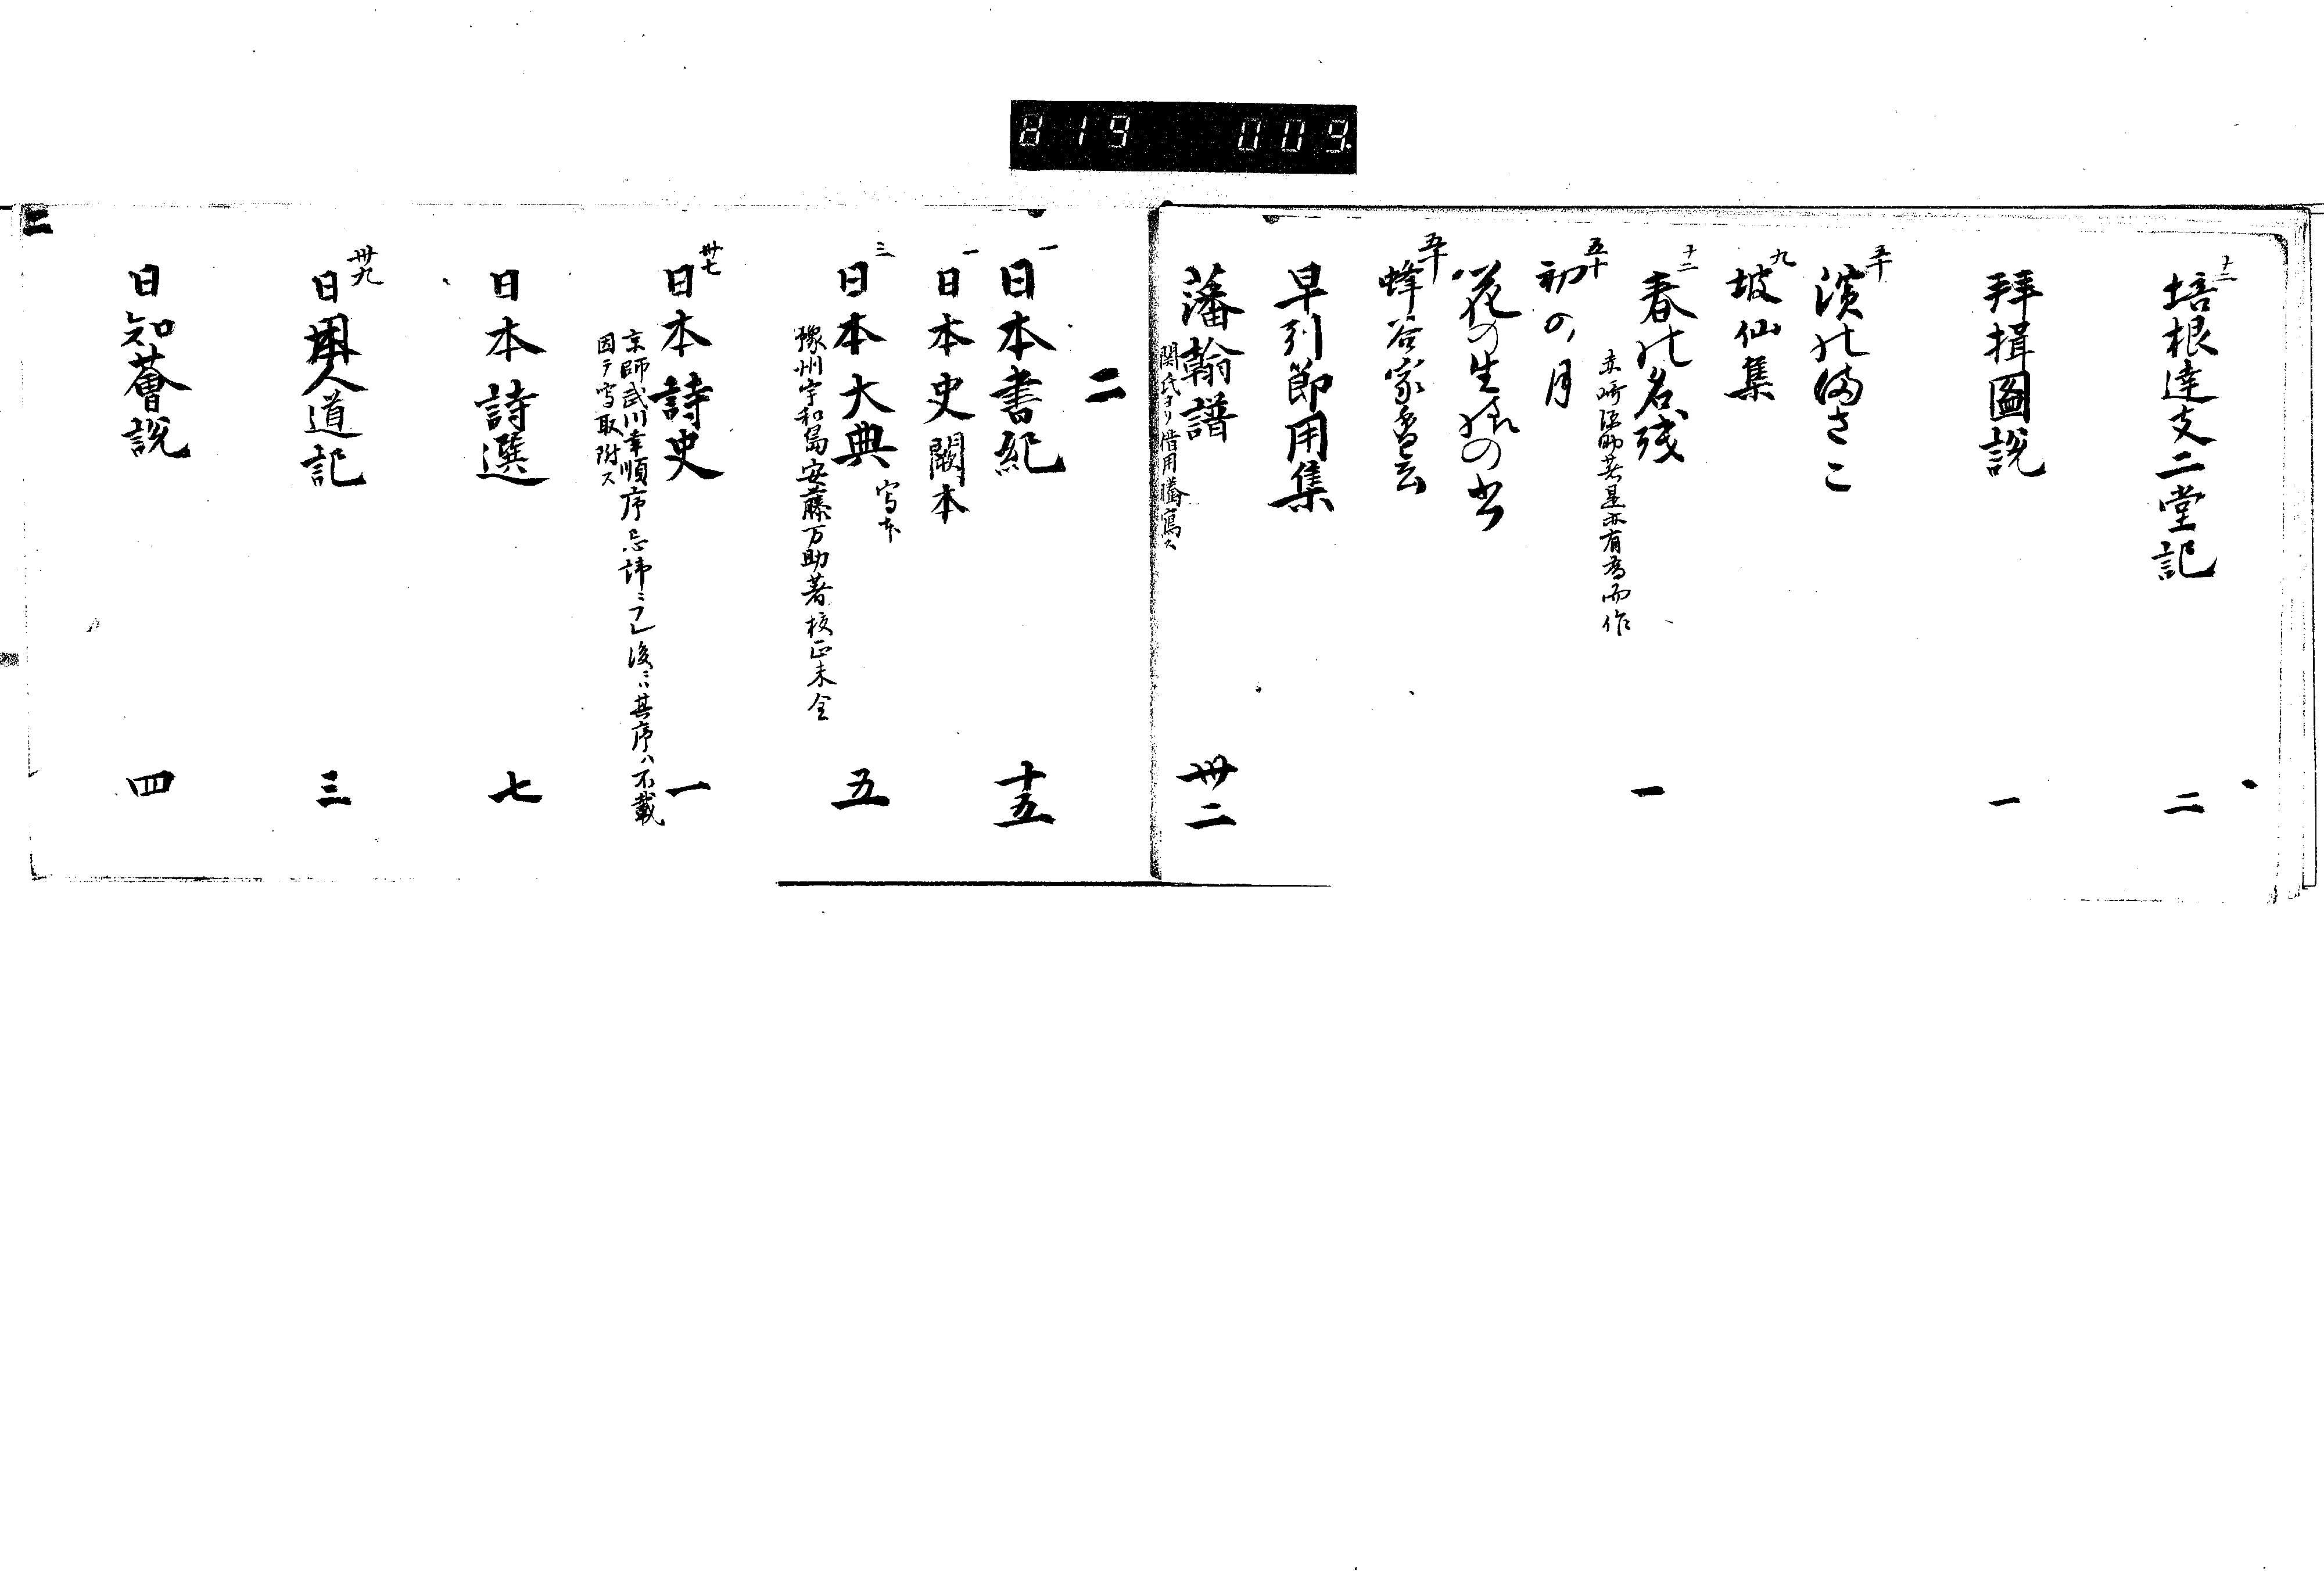 819 009
十二
培根達支二堂記 二
拜揖圖説 一
五十
濱のまさこ
九
坡仙集
十二
春の名残 一
是亦有為而作
五十
初の月
花の生 の
五十
蜂谷家香
早引節用集
藩翰譜 卅二
関氏ヨリ借用謄寫ス
二
一
日本書紀 十五
一
日本史 闕本
三
日本大典 写本 五
豫州宇和島安藤万助著校正未全
卅七
日本詩史 一
京師武川幸順序忌諱ニフレ後ニハ其序ハ不載
因テ写取附ス
日本詩選 七
卅九
日本人道記 三
日知薈説 四
二